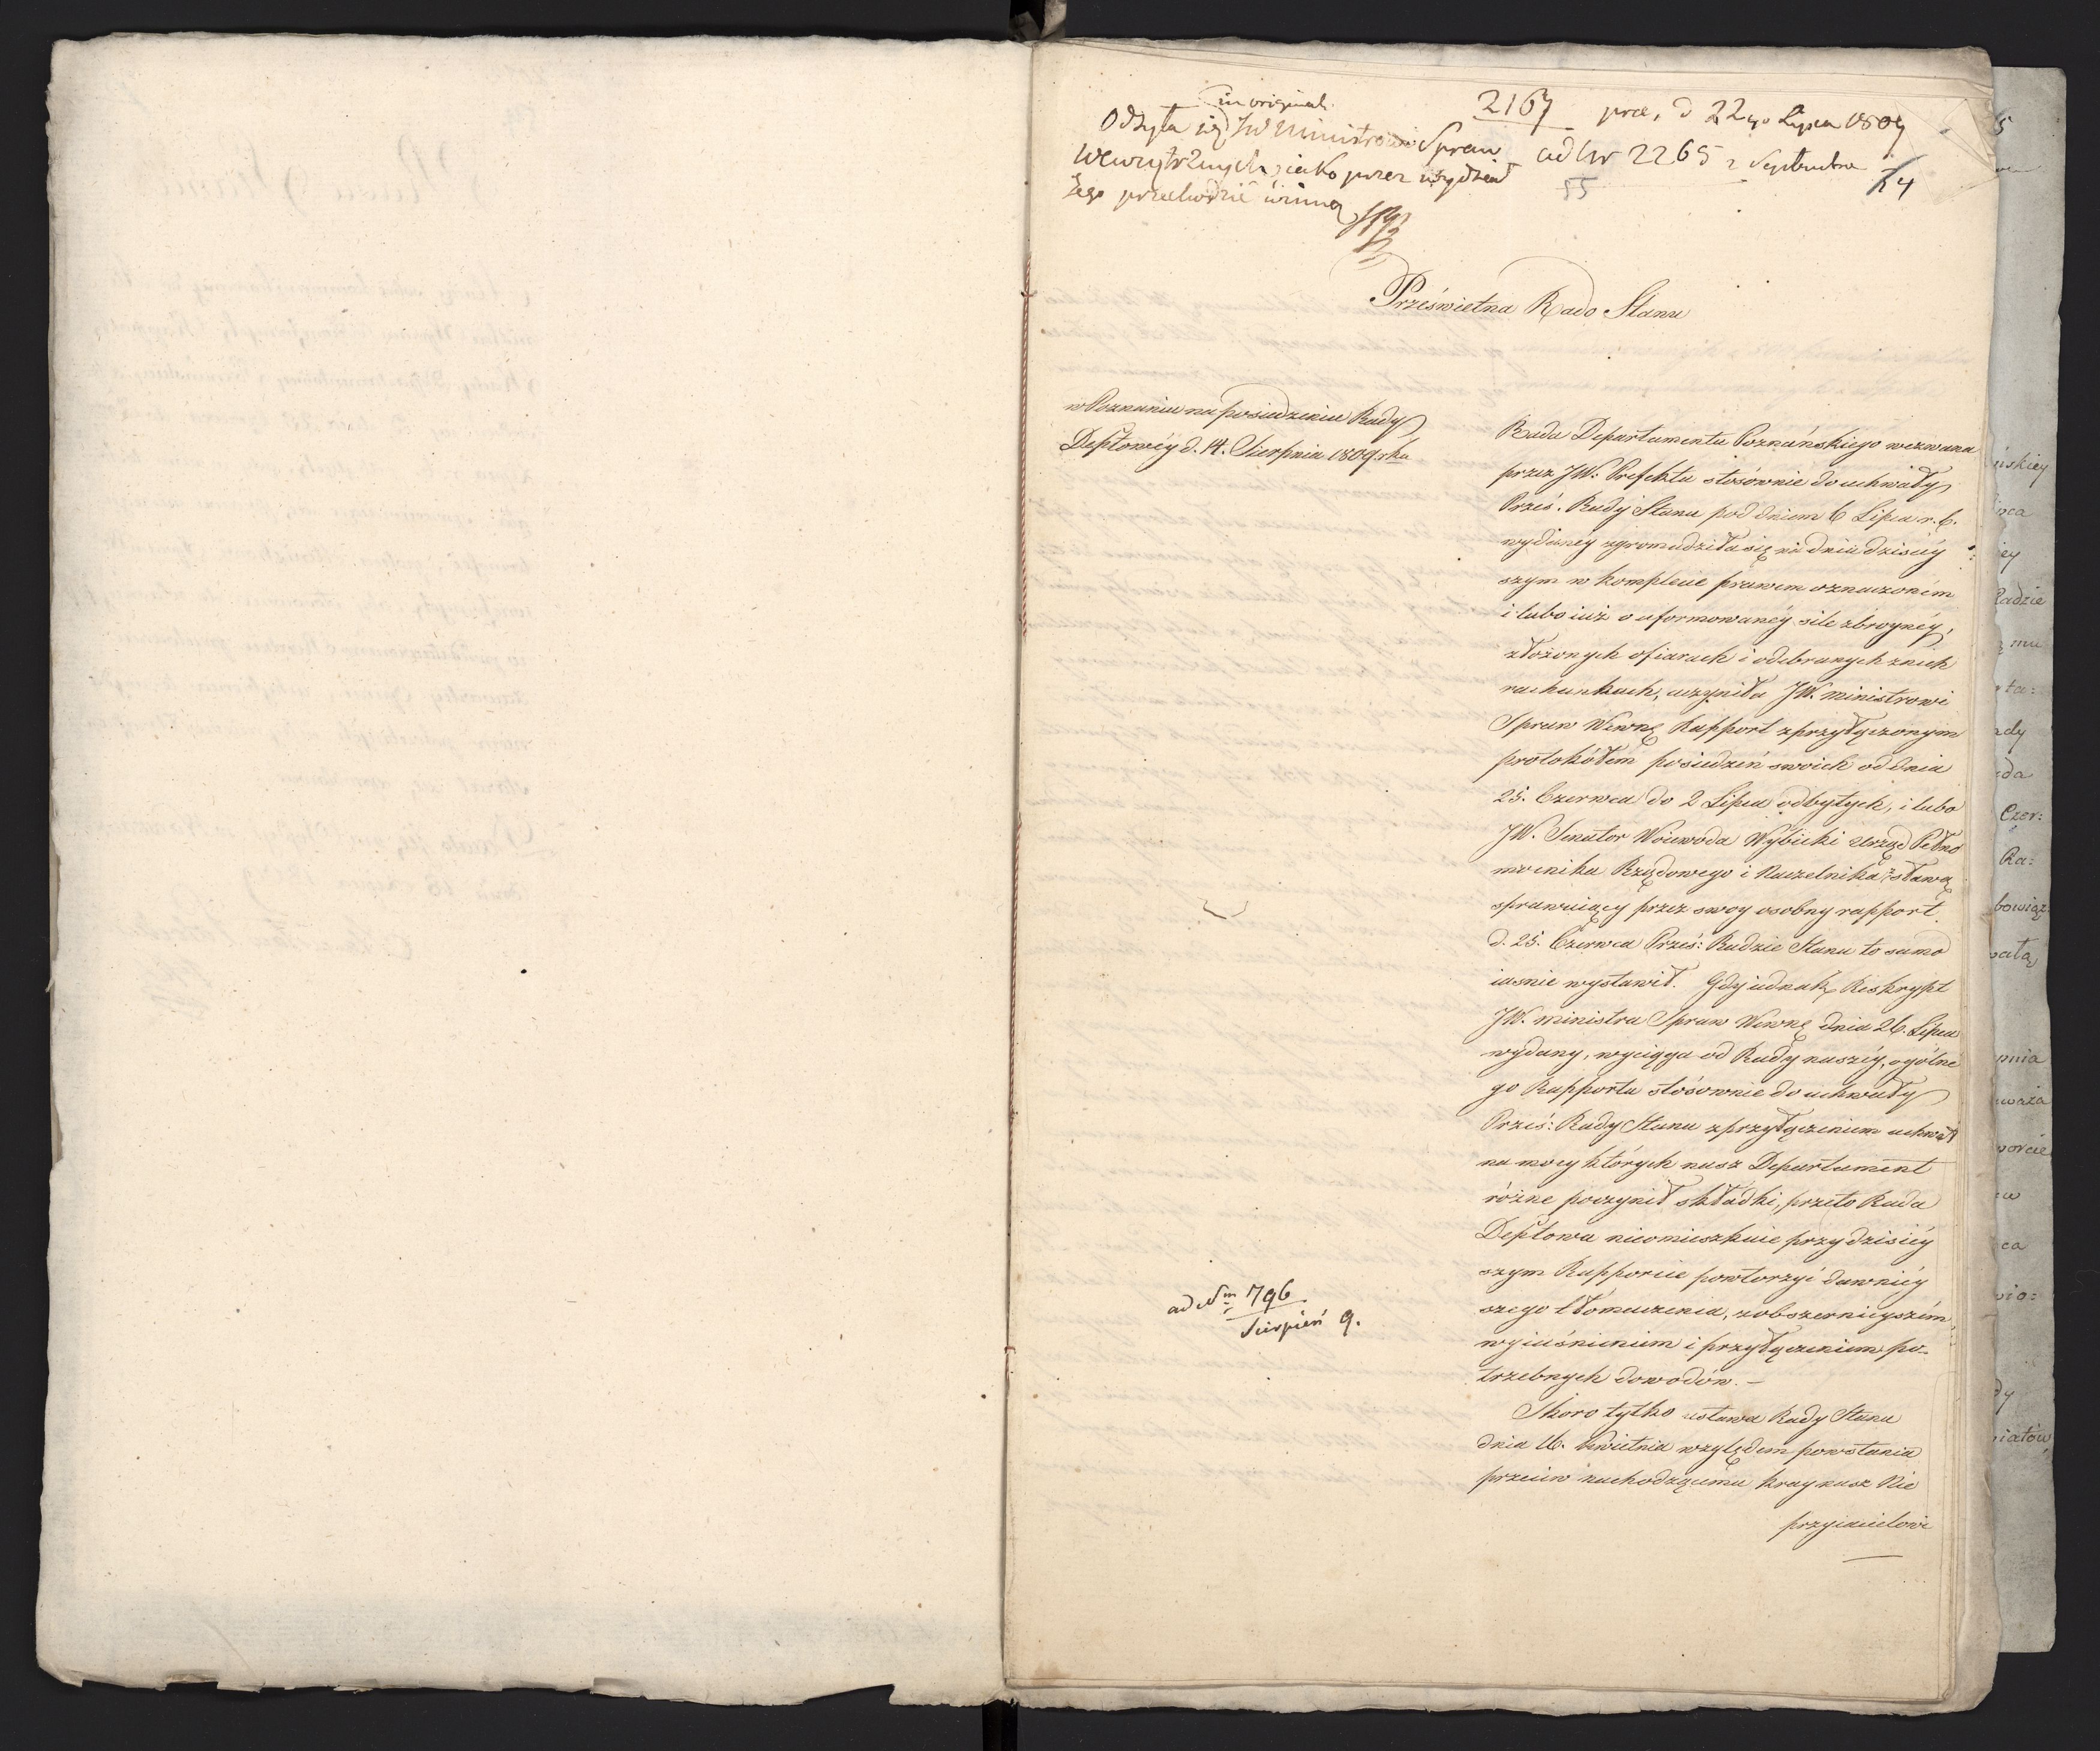 in original.
Odsyła się JW Ministrowi Spraw
Wewnętrznych, jako przez wydział
Jego przechodzić winna
2167 prae, d 22go Lipca 1809
ad Nr 2265 2 Septembra
55
74
Prześwietna Rado Stanu
w Poznaniu na posiedzeniu Rady
Deptowéy d. 14. Sierpnia 1809. rku
Rada Departamentu Poznańskiego wezwana
przez JW. Prefekta stósównie do uchwały
Prześ. Rady Stanu pod dniem 6 Lipca r. b.
wydaney zgromadziła się na dniu dzisiéy
szym w komplecie prawem oznaczoném
i lubo iuż o uformowanéy sile zbroynéy,
złożonych ofiarach i odebranych z nich
rachunkach, uczyniła JW. Ministrowi
Spraw Wewnę Rapport z przyłączonym
protokółem posiedzeń swoich od dnia
25. Czerwca do 2 Lipca odbytych, i lubo
JW. Senator Woiewoda Wybicki urząd Pełno
mocnika Rządowego i Naczelnika z sławą
sprawuiący przez swoy osobny rapport
d. 25. Czerwca Prześ: Radzie Stanu to samo
iasnie wystawił. Gdy iednak Reskrypt
JW. Ministra Spraw Wewnę dnia 26. Lipca
wydany, wyciąga od Rady naszéy, ogólne
go Rapportu stósownie do uchwały
Prześ: Rady Stanu z przyłączeniem uchwał
na mocy których nasz Departament
różne poczynił składki, przeto Rada
Deptowa nieomieszkuie przy dzisiéy
szym Rapporcie powtorzyć dawniéy
szego tłomaczenia, z obszernieyszém
wyiaśnieniem i przyłączeniem po-
trzebnych dowodów. –
Skoro tylko ustawa Rady Stanu
dnia 16. Kwietnia względem powstania
przeciw nachodzącemu kray nasz Nie
przyiacielowi
ad Nm 796
Sierpień 9.
ńskiey
ey
Radzie
mu
ta:
dy
da
Czer:
Ra:
bowiąz
pnia
ca
iatów